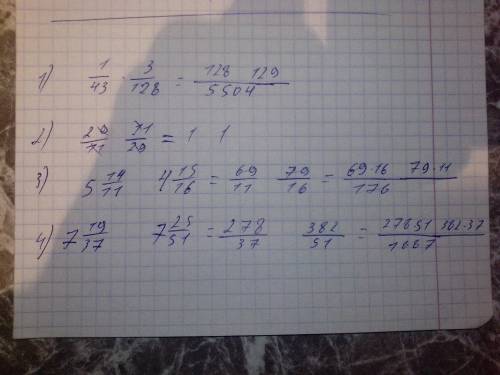 1) 1/43 · 3/128 = 128 129/5504
2) 20/11 11/20 = 1 1
3) 5 14/11 4 15/16 = 69/11 79/16 = 69·16 79·11/176
4) 7 19/37 7 25/51 = 278/37 382/51 = 27851 382·37/1887